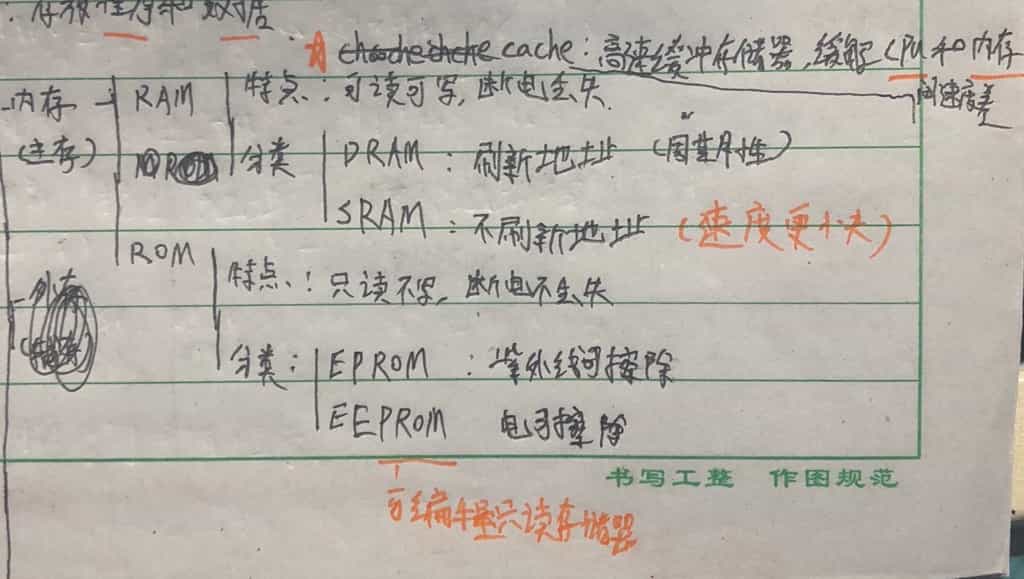 存放程序和数据.
cache: 高速缓冲存储器,缓解CPU和内存
间速度差
内存 RAM 特点: 可读可写,断电丢失.
(主存) 分类 DRAM: 刷新地址 (周期性)
SRAM: 不刷新地址 (速度更快)
ROM 特点: 只读不写,断电不丢失
外存
分类: EPROM: 紫外线可擦除
EEPROM 电可擦除
书写工整 作图规范
可编程只读存储器